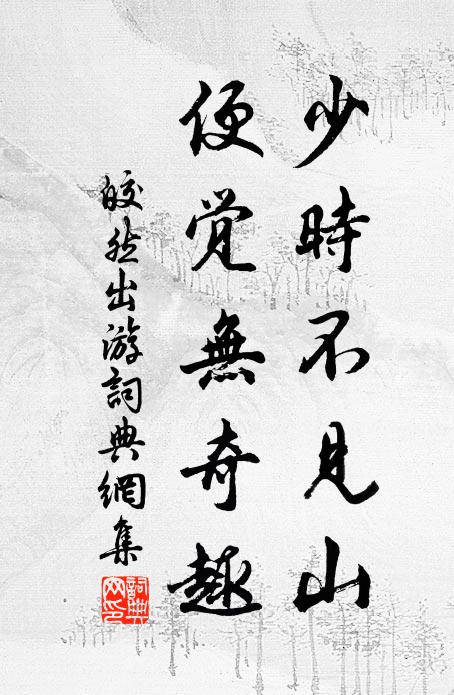 少時不見山
便覺無奇趣
皎然出游詞典網集
詞典
网印